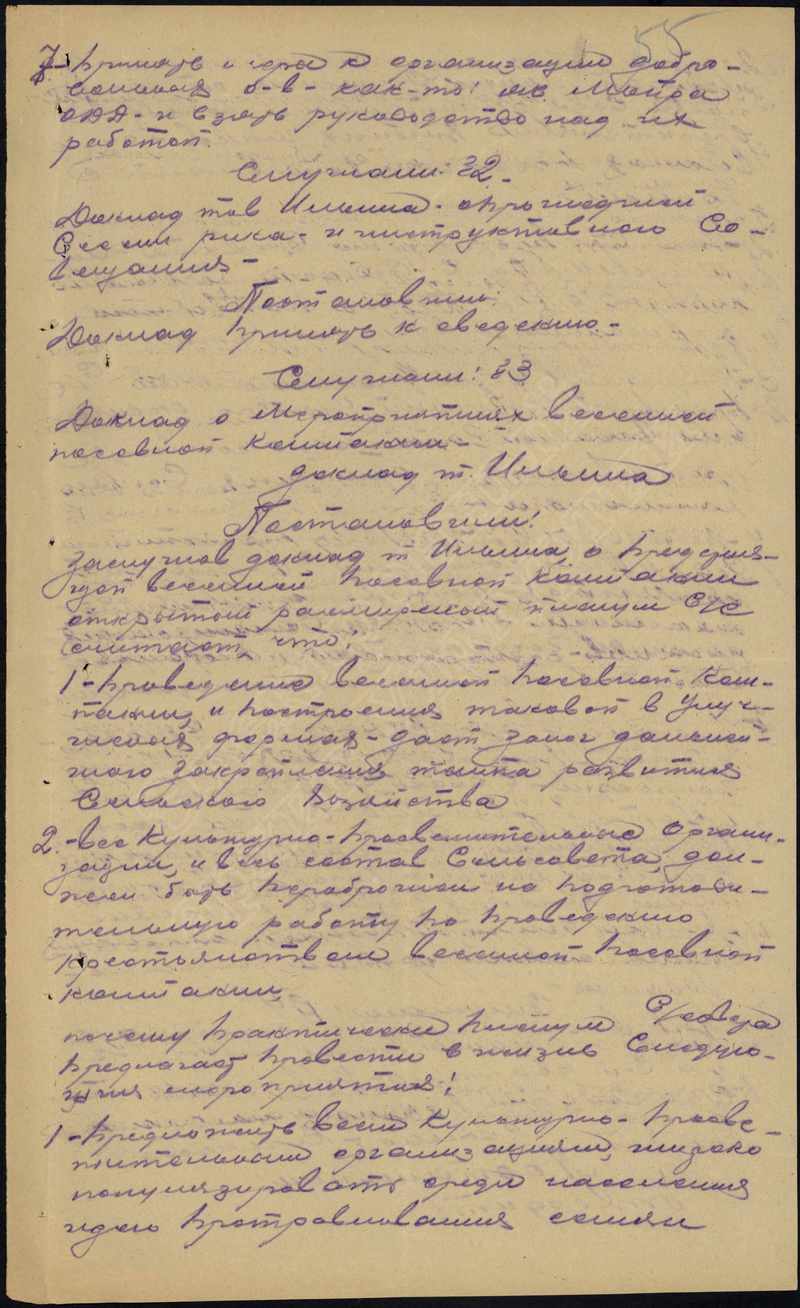 55
7- Принять меры к организации добро-
вольных о-в- как-то:
и взять руководство над их
работой.
Слушали: §2-
Доклад тов Ильина- о прошедшей
Сессии рика- и инструктивного Со-
вещания-
Постановили:
Доклад принять к сведению.-
Слушали: §3
Доклад о Мероприятиях весенней
посевной кампании-
доклад т. Ильина
Постановили:
Заслушав доклад т Ильина, о предстоя-
щей весенней посевной кампании
открытый расширенный пленум С/С
считает, что:
1- Проведение весенней посевной кам-
пании, и построения таковой в улуч-
шеных формах- даст залог дальней-
шего закрепления темпа развития
Сельского Хозяйства
2.- все Культурно-просветительные Органи-
зации, и весь состав Сельсовета, дол-
жен быть переброшен на подготови-
тельную работу по проведению
крестьянством весенней посевной
кампании,
почему практически пленум С/совета
предлагает провести в жизнь Следую-
щия мероприятия:
1- Предложить всем Культурно- просве-
тительным организациям, широко
популязировать среди населения
идею протравливания семян